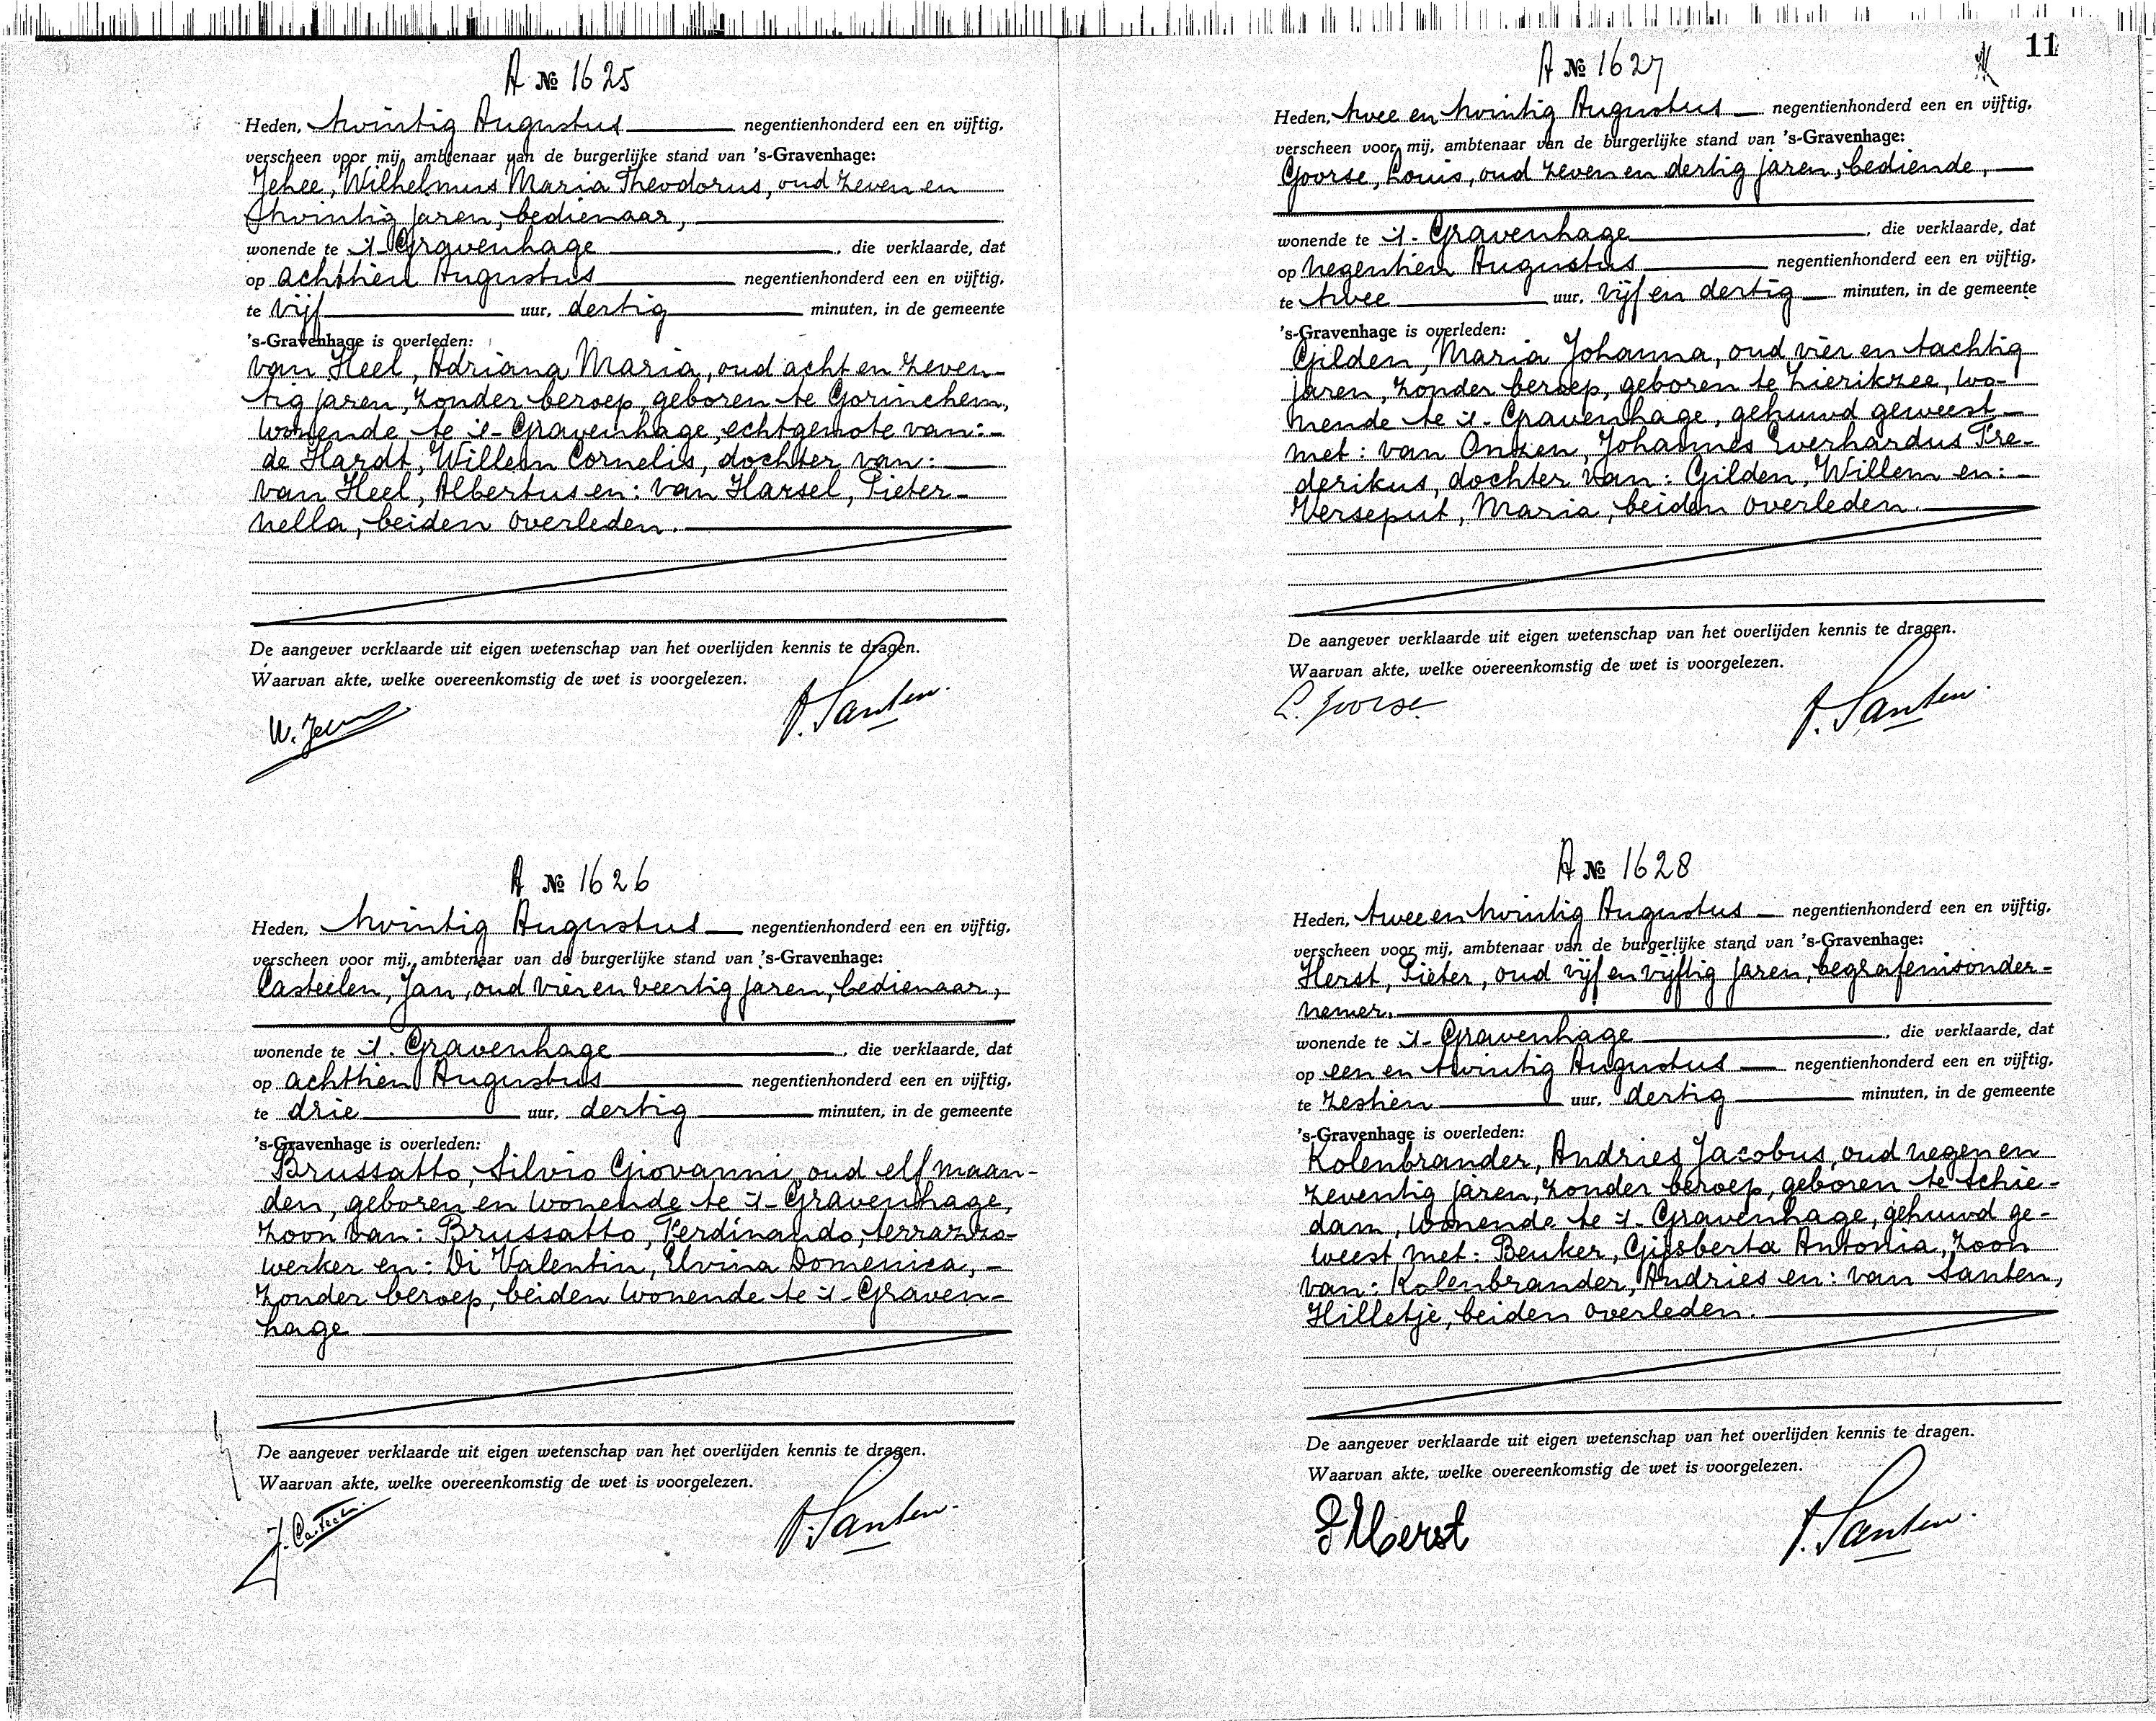 A № 1625
Heden, twintig Augustus negentienhonderd een en vijftig,
verscheen voor mij, ambtenaar van de burgerlijke stand van 's-Gravenhage:
Jehee, Wilhelmus Maria Theodorus, oud zeven en
twintig jaren, bedienaar,
wonende te 's-Gravenhage, die verklaarde, dat
op achttien Augustus negentienhonderd een en vijftig,
te vijf uur, dertig minuten, in de gemeente
's-Gravenhage is overleden:
van Heel, Adriana Maria, oud acht en zeven-
tig jaren, zonder beroep, geboren te Gorinchem,
wonende te 's-Gravenhage, echtgenote van:
de Hardt, Willem Cornelis, dochter van:
van Heel, Albertus en: van Harsel, Pieter-
nella, beiden overleden.
De aangever verklaarde uit eigen wetenschap van het overlijden kennis te dragen.
Waarvan akte, welke overeenkomstig de wet is voorgelezen.
Santen.
A № 1626
Heden, twintig Augustus negentienhonderd een en vijftig,
verscheen voor mij, ambtenaar van de burgerlijke stand van 's-Gravenhage:
Casteelen, Jan, oud vier en veertig jaren, bedienaar,
wonende te 's-Gravenhage, die verklaarde, dat
op achttien Augustus negentienhonderd een en vijftig,
te drie uur, dertig minuten, in de gemeente
's-Gravenhage is overleden:
Brussatto, Silvio Giovanni, oud elf maan-
den, geboren en wonende te 's-Gravenhage,
zoon van: Brussatto, Ferdinando, terrazzo-
werker en: Di Valentin, Elvina Domenica,
zonder beroep, beiden wonende te 's-Graven-
hage
De aangever verklaarde uit eigen wetenschap van het overlijden kennis te dragen.
Waarvan akte, welke overeenkomstig de wet is voorgelezen.
Santen.
11
A № 1627
Heden, twee en twintig Augustus negentienhonderd een en vijftig,
verscheen voor mij, ambtenaar van de burgerlijke stand van 's-Gravenhage:
Goorse, Louis, oud zeven en dertig jaren, bediende,
wonende te 's-Gravenhage, die verklaarde, dat
op negentien Augustus negentienhonderd een en vijftig,
te twee uur, vijf en dertig minuten, in de gemeente
's-Gravenhage is overleden:
Gilden, Maria Johanna, oud vier en tachtig
jaren, zonder beroep, geboren te Zierikzee, wo-
nende te 's-Gravenhage, gehuwd geweest
met: van Onzen, Johannes Everhardus Fre-
derikus, dochter van: Gilden, Willem en:
Verseput, Maria, beiden overleden.
De aangever verklaarde uit eigen wetenschap van het overlijden kennis te dragen.
Waarvan akte, welke overeenkomstig de wet is voorgelezen.
L. Goorse Santen.
A № 1628
Heden, twee en twintig Augustus negentienhonderd een en vijftig,
verscheen voor mij, ambtenaar van de burgerlijke stand van 's-Gravenhage:
Herst, Pieter, oud vijf en vijftig jaren, begrafenisonder-
nemer,
wonende te 's-Gravenhage, die verklaarde, dat
op een en twintig Augustus negentienhonderd een en vijftig,
te zestien uur, dertig minuten, in de gemeente
's-Gravenhage is overleden:
Kolenbrander, Andries Jacobus, oud negen en
zeventig jaren, zonder beroep, geboren te Schie-
dam, wonende te 's-Gravenhage, gehuwd ge-
weest met: Beuker, Gijsberta Antonia, zoon
van: Kolenbrander, Andries en: van Santen,
Hilletje, beiden overleden.
De aangever verklaarde uit eigen wetenschap van het overlijden kennis te dragen.
Waarvan akte, welke overeenkomstig de wet is voorgelezen.
P Herst Santen.